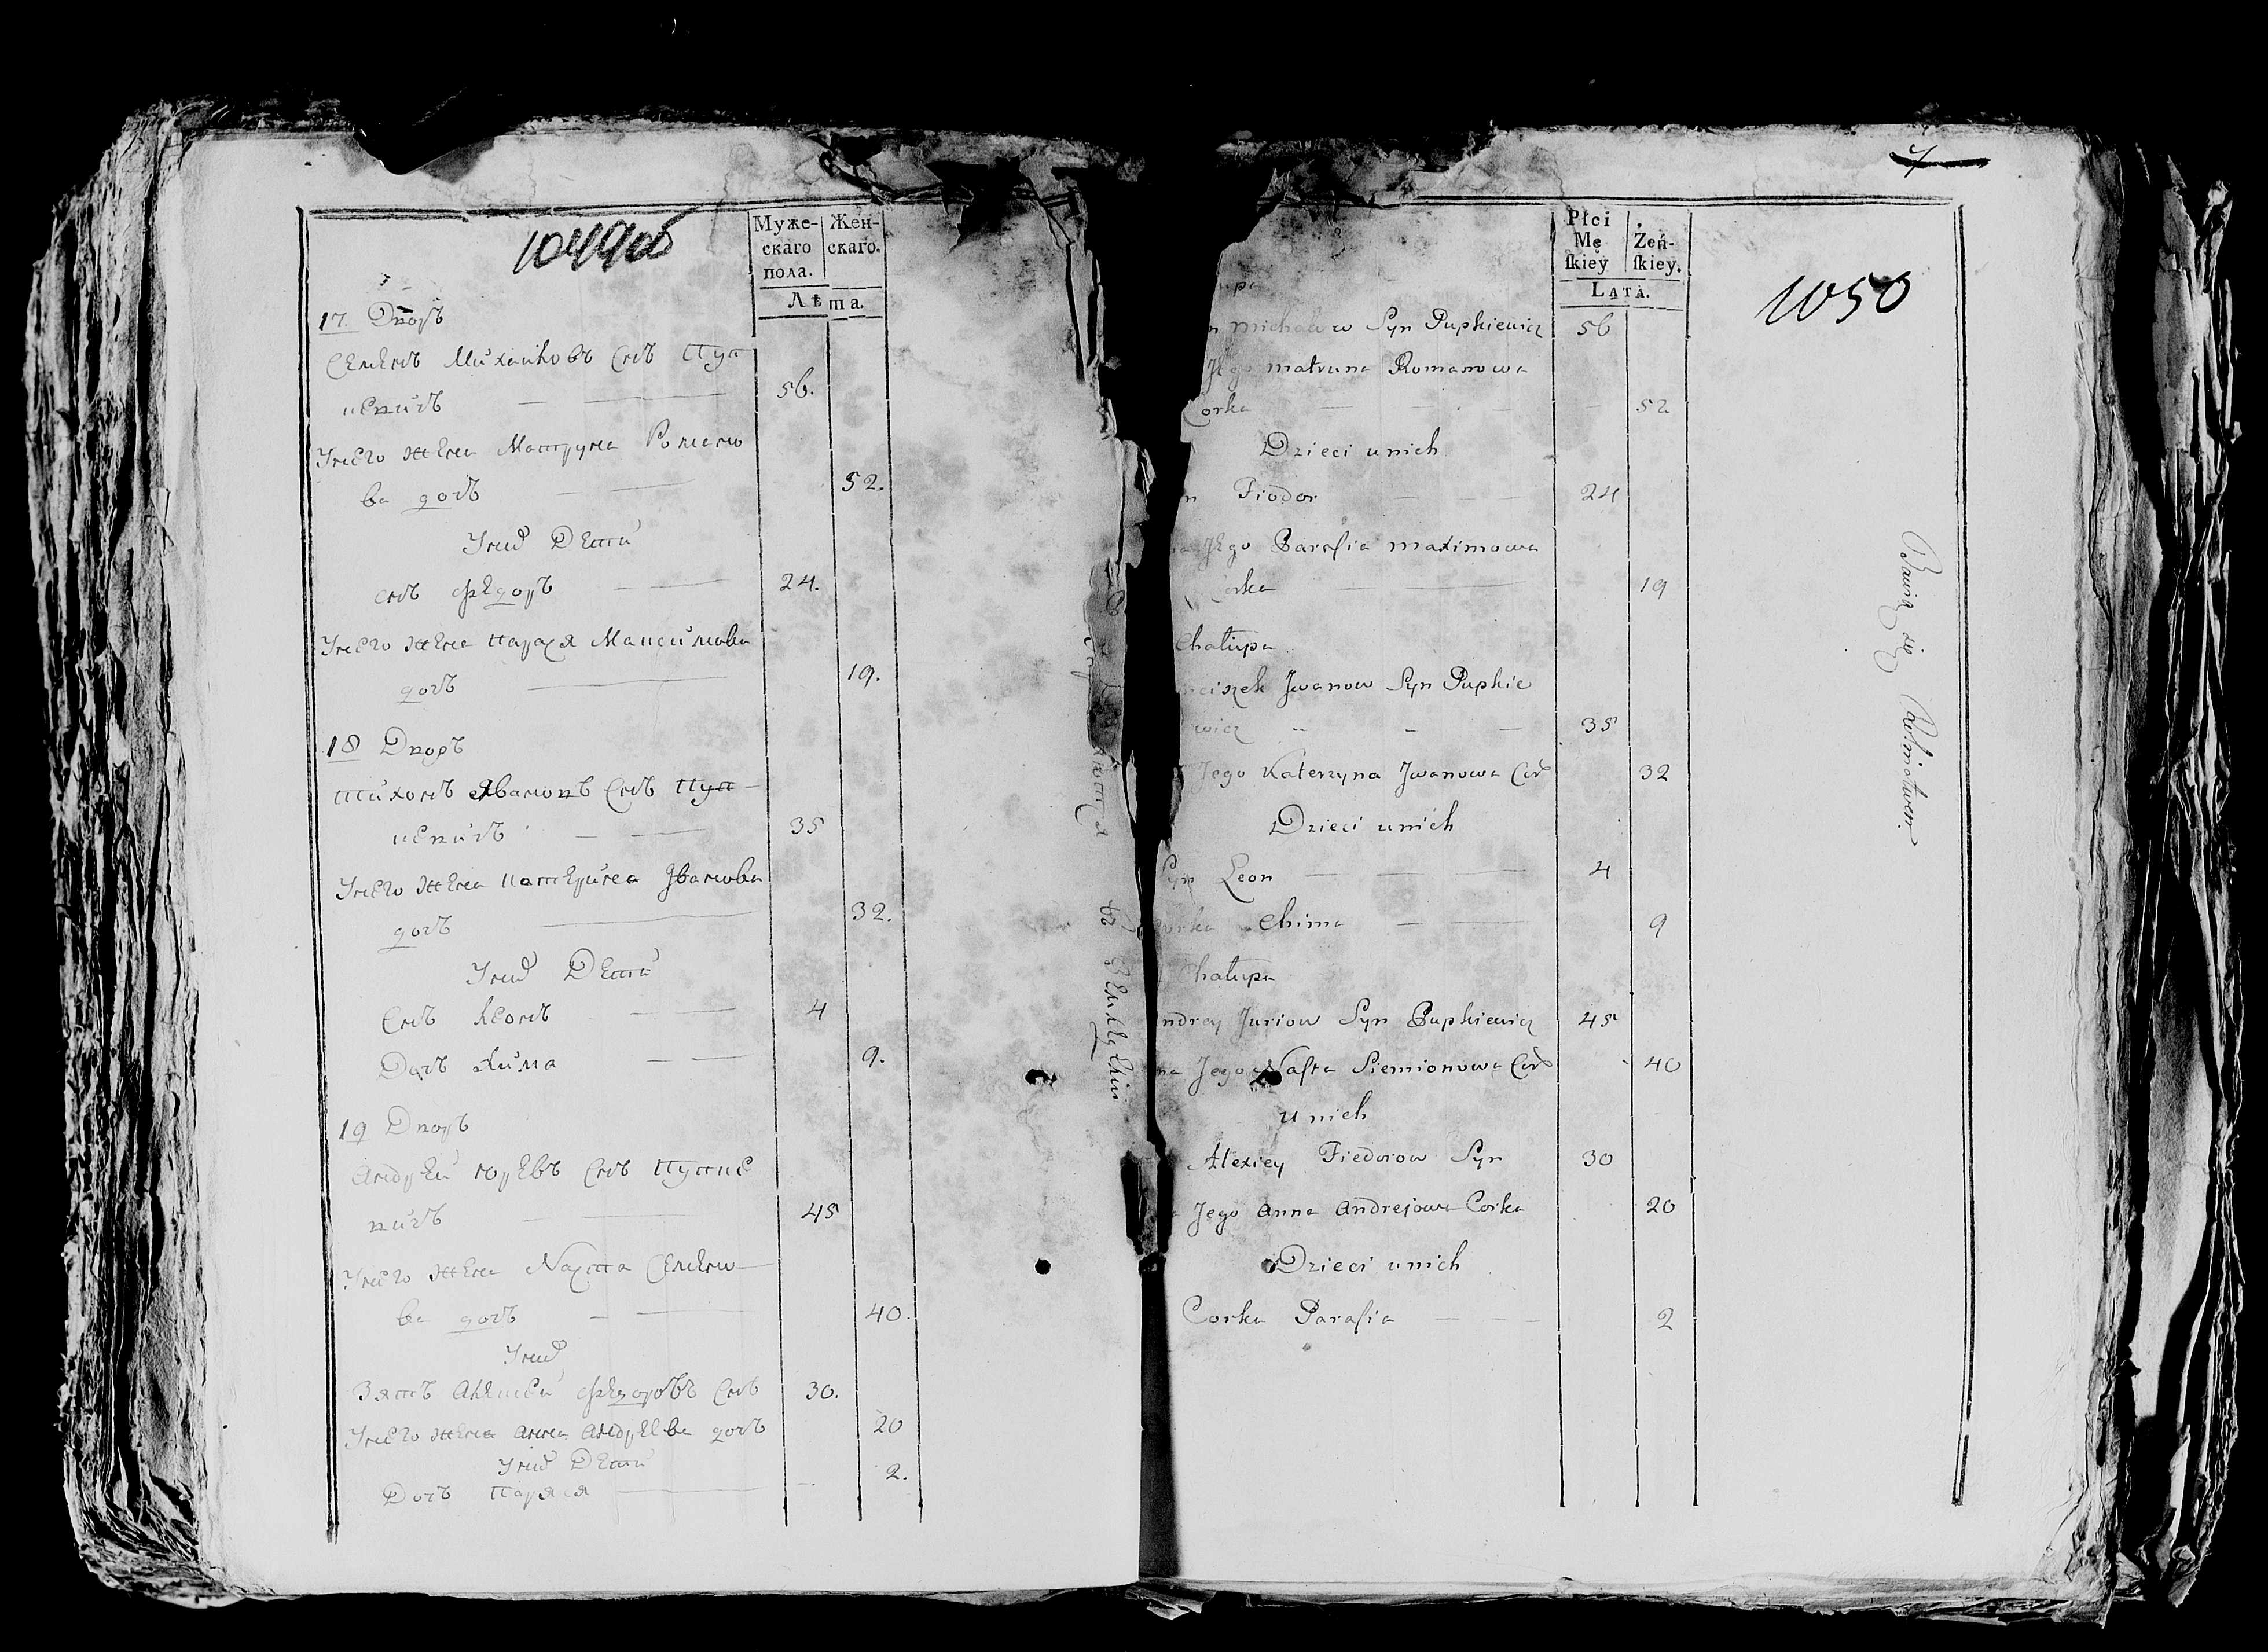 1049об
Муже-
скаго
пола.
Жен-
скаго.
Лѣта.
17. Дворъ
Семенъ Михайловъ Снъ Пуп
кевичъ — — 56.
Унего жена Матруна Романо
ва дочъ — — 52.
Уних Дети
снъ Федоръ — — 24.
Унего жена Парася Максимова
дочъ — 19.
18 Дворъ
Тихонъ Ивановъ Снъ Пуп-
кевичъ — — 35
Унего жена Катерина Иванова
дочъ — 32.
Уних Дети
Снъ Леонъ — — 4
Дочъ Хима — — 9.
19 Дворъ
Андрей Юревъ Снъ Пупке
вичъ — — 45
Унего жена Наста Семено-
ва дочъ — — 40.
Уних
Зять Алексей Федоровъ Снъ 30.
Унего жена Анна Андреева дочъ 20
Уних Дети
Дочъ Парася — 2.
въ Земледелии
4
1050
Płci
Mę
ſkiey
Żeń-
ſkiey.
LATA.
upa
n Michałow Syn Pupkiewicz 56
Jego Matruna Romanowa
Corka — — — 52
Dzieci unich
n Fiodor — — — 24
Jego Parasia Maximowa
Corka — 19
Chałupa
ciszek Jwanow Syn Pupkie
wicz — — — 35
Jego Katerzyna Jwanowa Cor 32
Dzieci unich
Syn Leon — — — 4
Corka Chima — — 9
Chałupa
ndrey Juriow Syn Pupkiewicz 45
na Jego Nasta Siemionowa Cor 40
unich
Alexiey Fiedorow Syn 30
a Jego Anna Andrejowa Corka 20
Dzieci unich
Corka Parasia — — — 2
Bawią się Rolnictwem